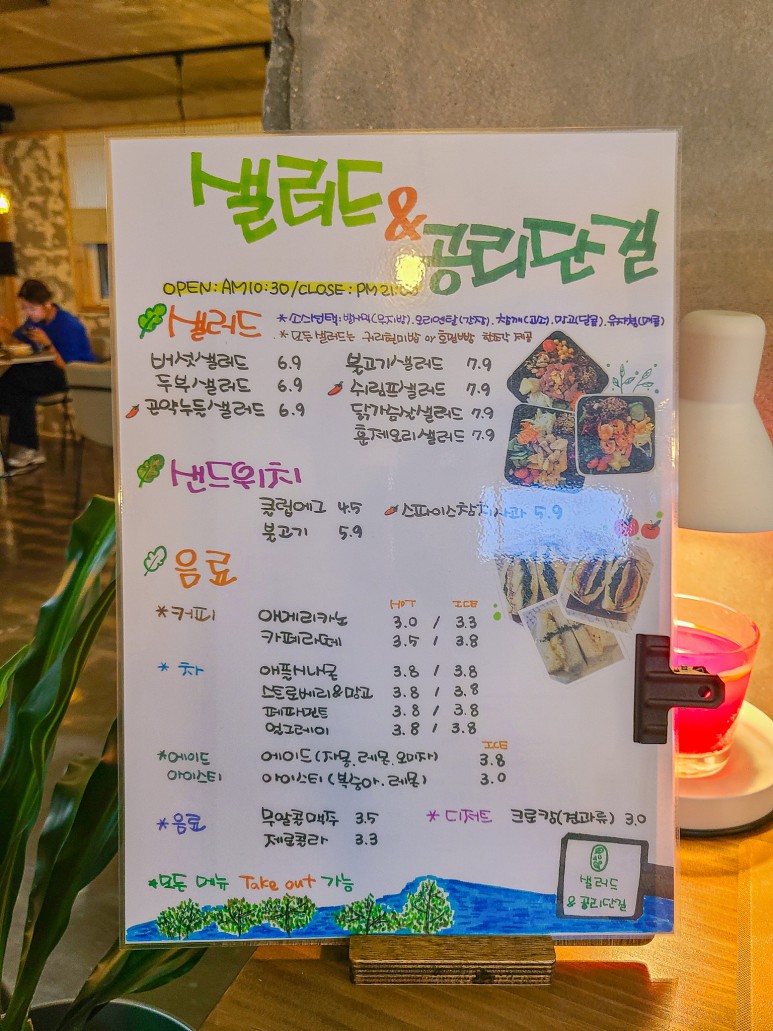 샐러드
&
공리단길
OPEN: AM10:30/CLOSE: PM21:
샐러드
*소스선택: 발사믹(무지방), 오리엔탈(간장), 참깨(고소), 망고(달콤), 유자청(매콤)
*모든 샐러드는 귀리현미밥 or 호밀빵 한조각 제공
버섯샐러드 6.9 불고기샐러드 7.9
두부샐러드 6.9 쉬림프샐러드 7.9
곤약누들샐러드 6.9 닭가슴살샐러드 7.9
훈제오리샐러드 7.9
샌드위치
클럽에그 4.5 스파이스참치사과 5.9
불고기 5.9
음료
HOT ICE
*커피 아메리카노 3.0 / 3.3
카페라떼 3.5 / 3.8
*차 애플시나몬 3.8 / 3.8
스트로베리&망고 3.8 / 3.8
페퍼먼트 3.8 / 3.8
얼그레이 3.8 / 3.8
ICE
*에이드 에이드(자몽, 레몬, 오미자) 3.8
아이스티 아이스티(복숭아, 레몬) 3.0
*음료 무알콜맥주 3.5 *디저트 크로캉(견과류) 3.0
제로콜라 3.3
*모든 메뉴 Take out 가능
샐러드
& 공리단길